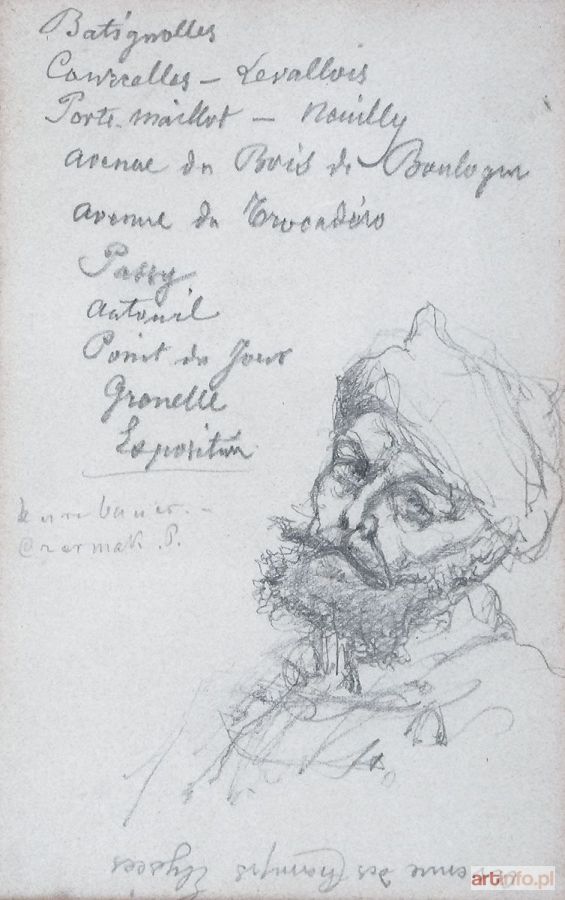 Batignolles
Courcelles – Levallois
Porte-Maillot – Neuilly
Avenue du Bois de Boulogne
Avenue du Trocadéro
Passy
Auteuil
Point du Jour
Grenelle
Exposition
Czermak. P.
Avenue des Champs Elysées
artinfo.pl